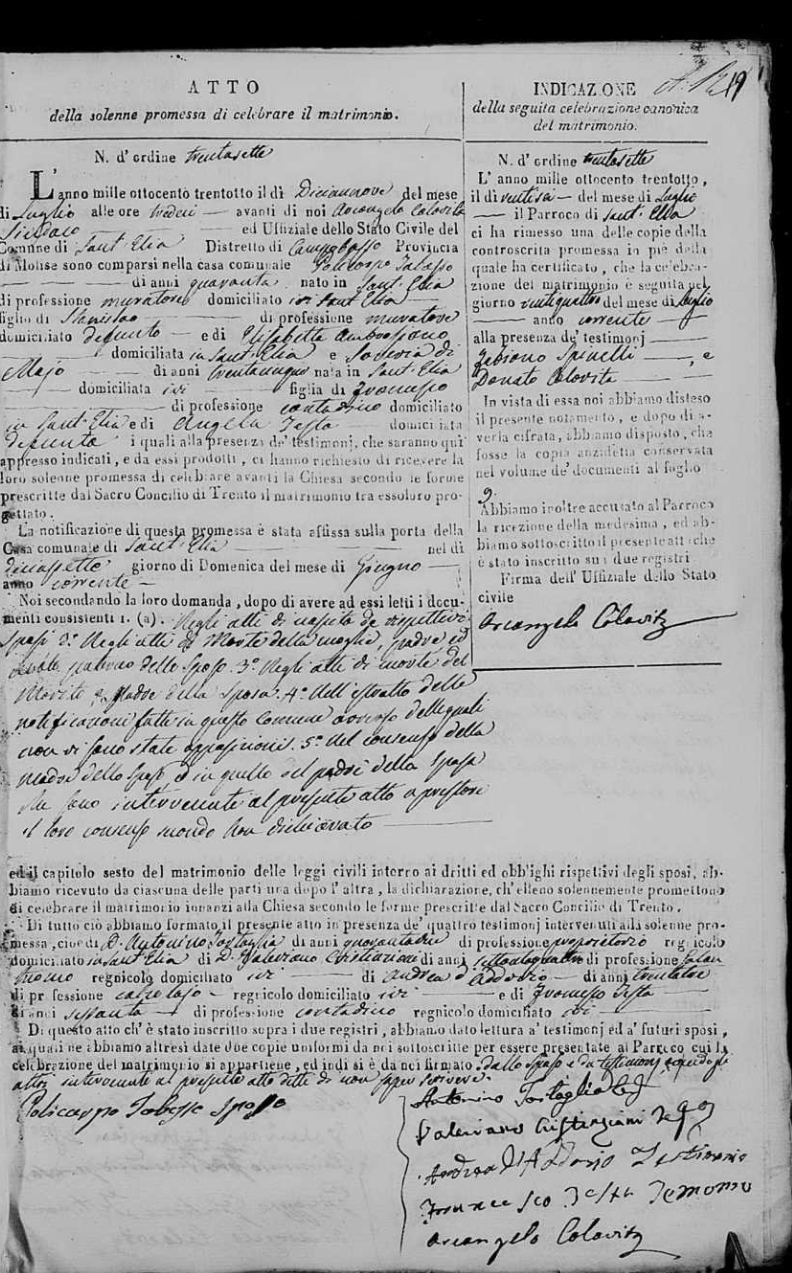 ATTO
della solenne promessa di celebrare il matrimonio.
N. d' ordine trentasette
L'anno mille ottocento trentotto il dì Diciannove del mese
di Luglio alle ore tredeci avanti di noi Arcangelo Colavita
Sindaco ed Uffiziale dello Stato Civile del
Comune di Sant'Elia Distretto di Campobasso Provincia
di Molise sono comparsi nella casa comunale Policarpo Tabasso
di anni quaranta nato in Sant'Elia
di professione muratore domiciliato ivi Sant'Elia
figlio di Stanislao di professione muratore
domiciliato defunto e di Elisabetta Ambrosiano
domiciliata in Sant'Elia e Saveria di
Majo di anni trentacinque nata in Sant'Elia
domiciliata ivi figlia di Francesco
di professione contadino domiciliato
in Sant'Elia e di Angela Testa domiciliata
defunta i quali alla presenza de' testimonj, che saranno quì
appresso indicati, e da essi prodotti, ci hanno richiesto di ricevere la
loro solenne promessa di celebrare avanti la Chiesa secondo le forme
prescritte dal Sacro Concilio di Trento il matrimonio tra essoloro pro-
gettato.
La notificazione di questa promessa è stata affissa sulla porta della
Casa comunale di Sant'Elia nel dì
diciassette giorno di Domenica del mese di Giugno
anno corrente
Noi secondando la loro domanda, dopo di avere ad essi letti i docu-
menti consistenti 1. (a). Negli atti di nascita de rispettivi
sposi 2.° Negli atti di Morte della moglie, padre ed
avolo paterno dello Sposo. 3.° Negli atti di morte del
Marito e Madre della Sposa. 4.° Nell'estratto delle
notificazioni fatte in questo Comune avverso delle quali
non vi sono state opposizioni. 5.° Nel consenso della
madre dello Sposo ed in quello del padre della Sposa
che sono intervenuti al presente atto a prestare
il loro consenso
ed il capitolo sesto del matrimonio delle leggi civili intorno ai dritti ed obblighi rispettivi degli sposi, ab-
biamo ricevuto da ciascuna delle parti una dopo l'altra, la dichiarazione, ch'elleno solennemente promettono
di celebrare il matrimonio innanzi alla Chiesa secondo le forme prescritte dal Sacro Concilio di Trento.
Di tutto ciò abbiamo formato il presente atto in presenza de' quattro testimonj intervenuti alla solenne pro-
messa, cioè di D. Antonino Tortaglia di anni quarantatre di professione proprietario regnicolo
domiciliato in Sant'Elia di D. Valeriano Cristianziani di anni settantaquattro di professione galan
tuomo regnicolo domiciliato ivi di Andrea d'Addario di anni trentatre
di professione calzolajo regnicolo domiciliato ivi e di Francesco Testa
di anni sessanta di professione contadino regnicolo domiciliato ivi
Di questo atto ch'è stato inscritto sopra i due registri, abbiamo dato lettura a' testimonj ed a' futuri sposi,
ai quali ne abbiamo altresì date due copie uniformi da noi sottoscritte per essere presentate al Parroco cui la
celebrazione del matrimonio si appartiene, ed indi si è da noi firmato, dallo Sposo e da testimonj
altri intervenuti al presente atto detti di non saper scrivere.
Policarpo Tabasso Sposo
Antonino Tortaglia
Valeriano Cristianziani
Andrea D'Addario Testimonio
Francesco Testa
Arcangelo Colavita
INDICAZIONE
della seguita celebrazione canonica
del matrimonio.
19
N. d' ordine trentasette
L' anno mille ottocento trentotto,
il dì ventisei del mese di Luglio
il Parroco di Sant'Elia
ci ha rimesso una delle copie della
controscritta promessa in piè della
quale ha certificato, che la celebra-
zione del matrimonio è seguita nel
giorno ventiquattro del mese di Luglio
anno corrente
alla presenza de' testimonj
Fabiano Spinelli, e
Donato Colavita
In vista di essa noi abbiamo disteso
il presente notamento, e dopo di a-
verla cifrata, abbiamo disposto, che
fosse la copia anzidetta conservata
nel volume de' documenti al foglio
9.
Abbiamo inoltre accusato al Parroco
la ricezione della medesima, ed ab-
biamo sottoscritto il presente atto che
è stato inscritto su i due registri
Firma dell' Uffiziale dello Stato
civile
Arcangelo Colavita